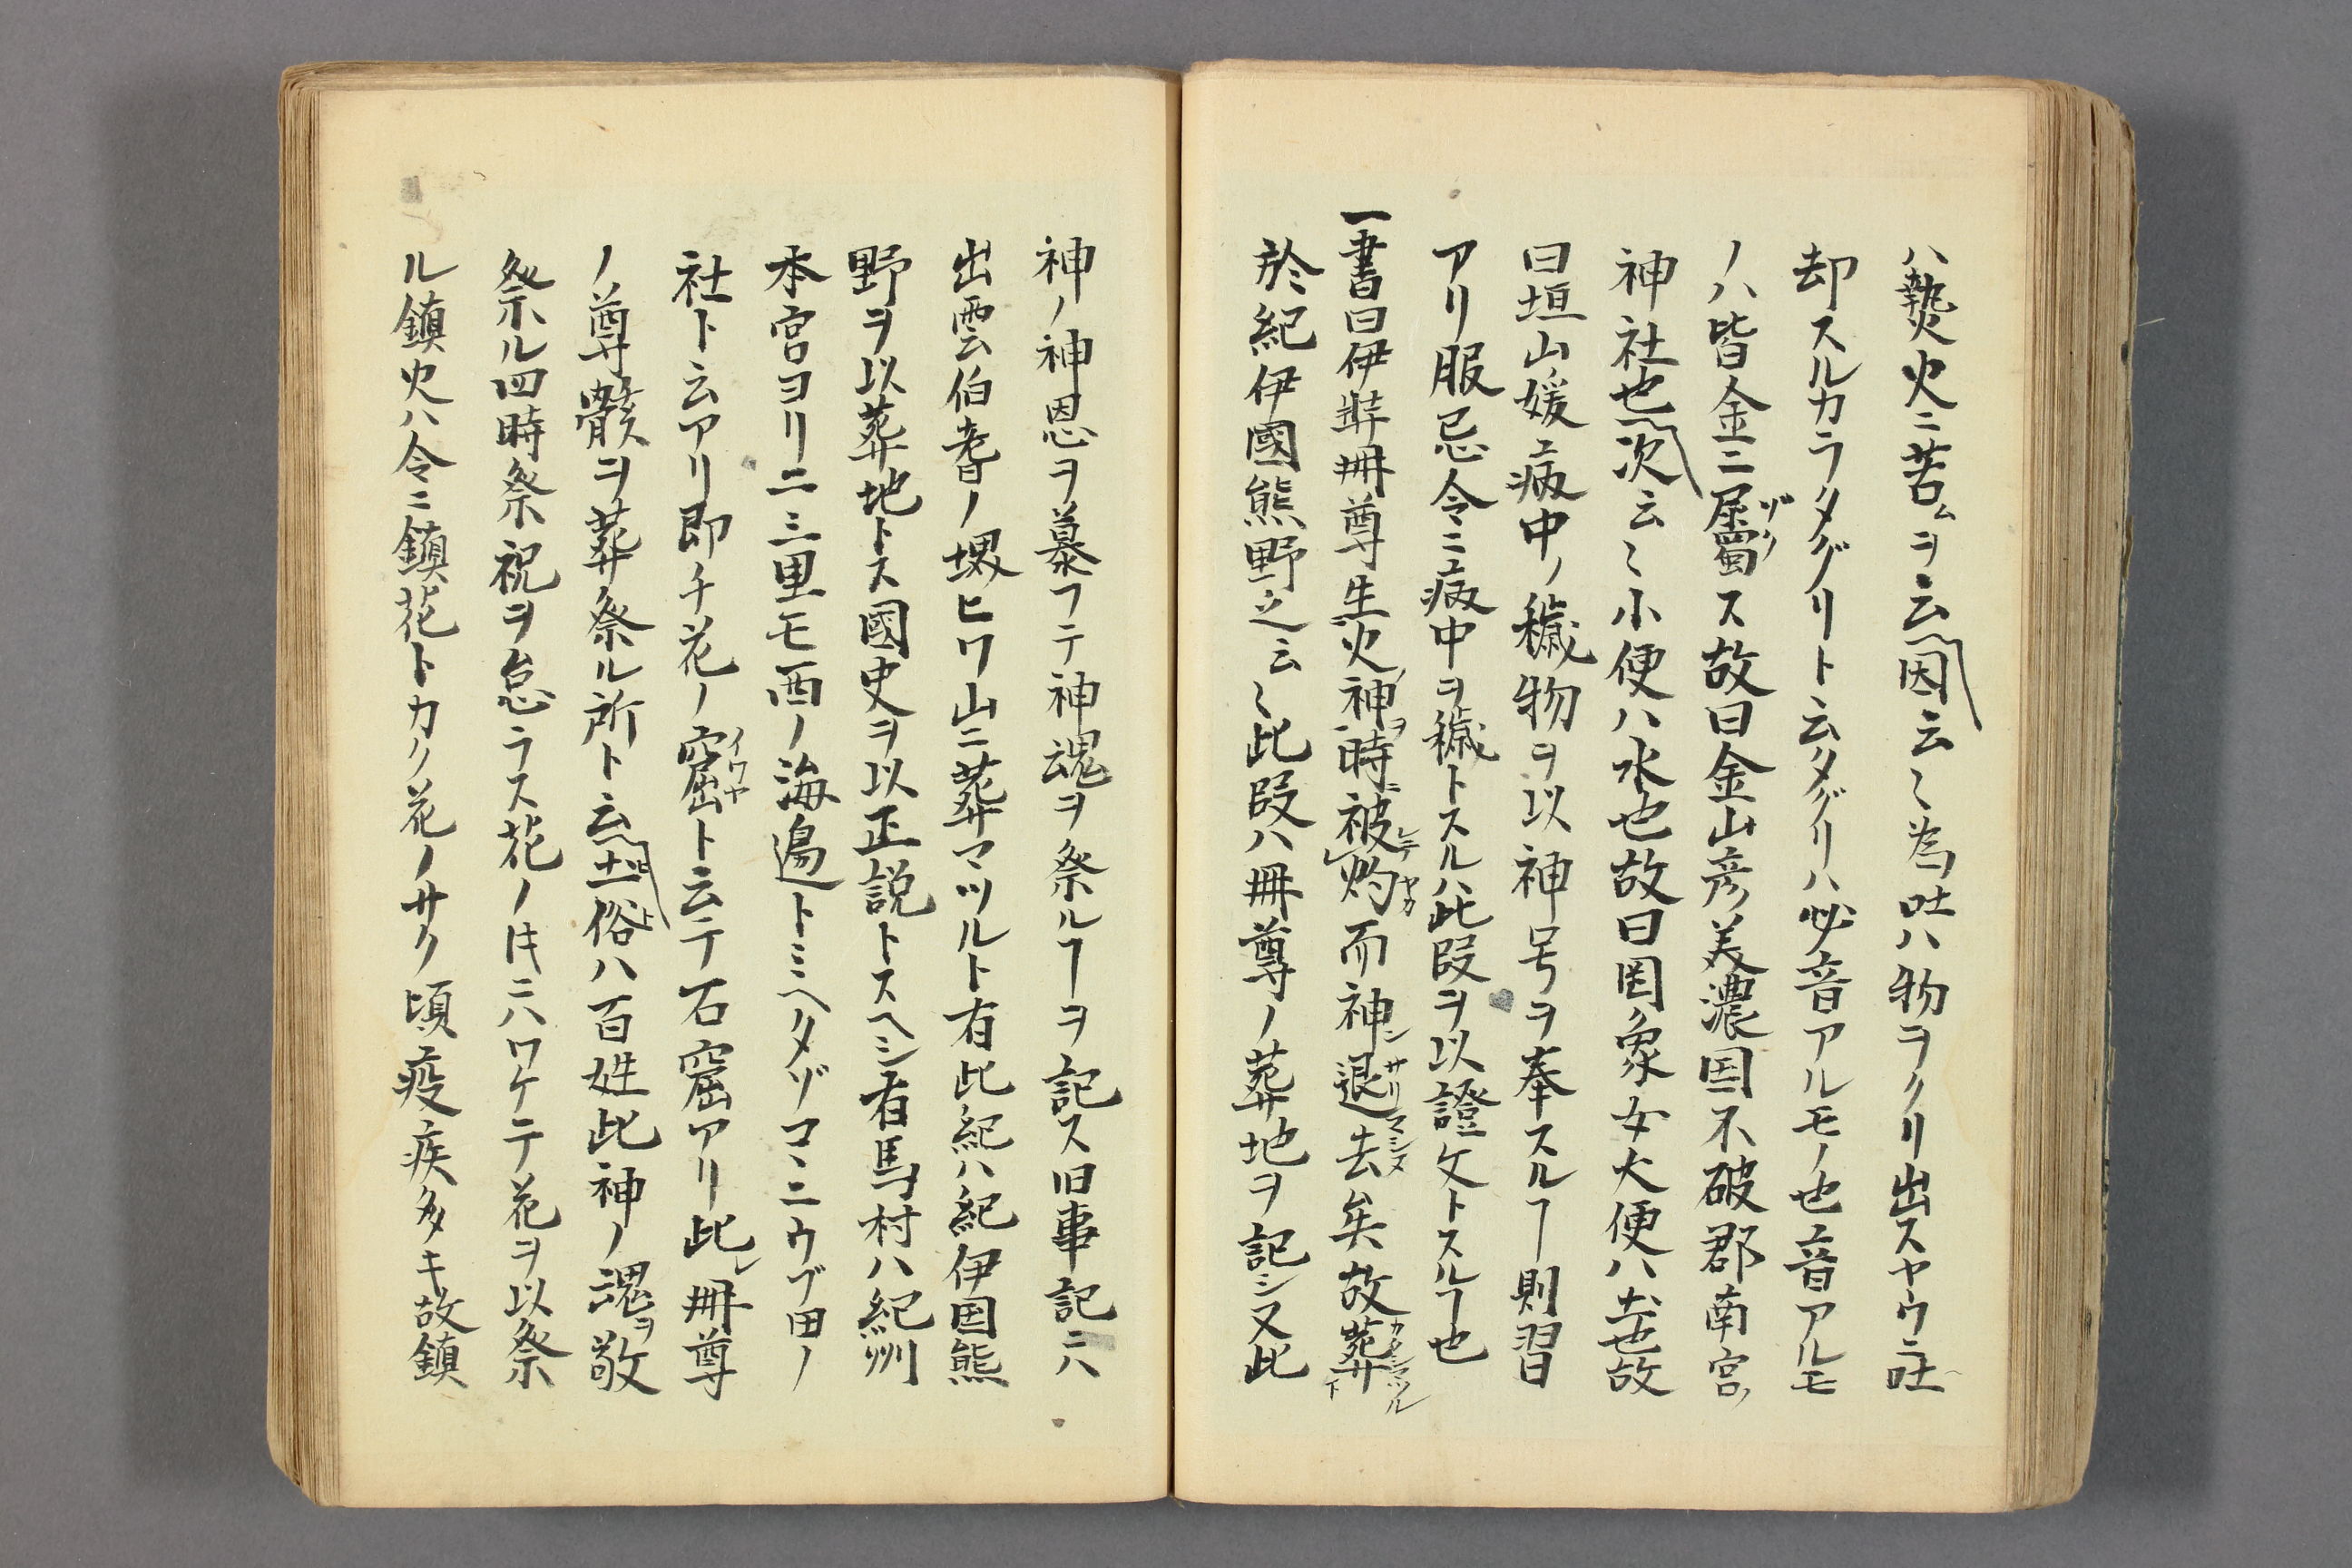 ハ熱火ニ苦ムヲ云因云〻為吐ハ物ヲクリ出スヤウニ吐
却スルカラタグリト云タグリハ必音アルモノ也音アルモ
ノハ皆金ニ属ス故曰金山彦美濃国不破郡南宮ノ
神社也次云〻小便ハ水也故曰罔象女大便ハ土也故
曰垣山媛病中ノ穢物ヲ以神号ヲ奉スルヿ則習
アリ服忌令ニ病中ヲ穢トスルハ此段ヲ以證文トスルヿ也
一書曰伊弉冊尊生火神ヲ時被灼而神退去矣故葬
於紀伊國熊野之云〻此段ハ冊尊ノ葬地ヲ記シ又此
神ノ神恩ヲ慕フテ神魂ヲ祭ルヿヲ記ス旧事記ニハ
出雲伯耆ノ堺ヒワ山ニ葬マツルト有此紀ハ紀伊国熊
野ヲ以葬地トス國史ヲ以正説トスヘシ有馬村ハ紀州
本宮ヨリ二三里モ西ノ海邉トミヘタゾコヽニウブ田ノ
社ト云アリ即チ花ノ窟イワヤト云テ石窟アリ此レ冊尊
ノ尊骸ヲ葬祭ル所ト云土俗ハ百姓此神ノ魂ヲ敬
祭ル四時祭祝ヲ怠ラス花ノ時ニハワケテ花ヲ以祭
ル鎮火ハ令ニ鎮花トカク花ノサク頃疫疾多キ故鎮